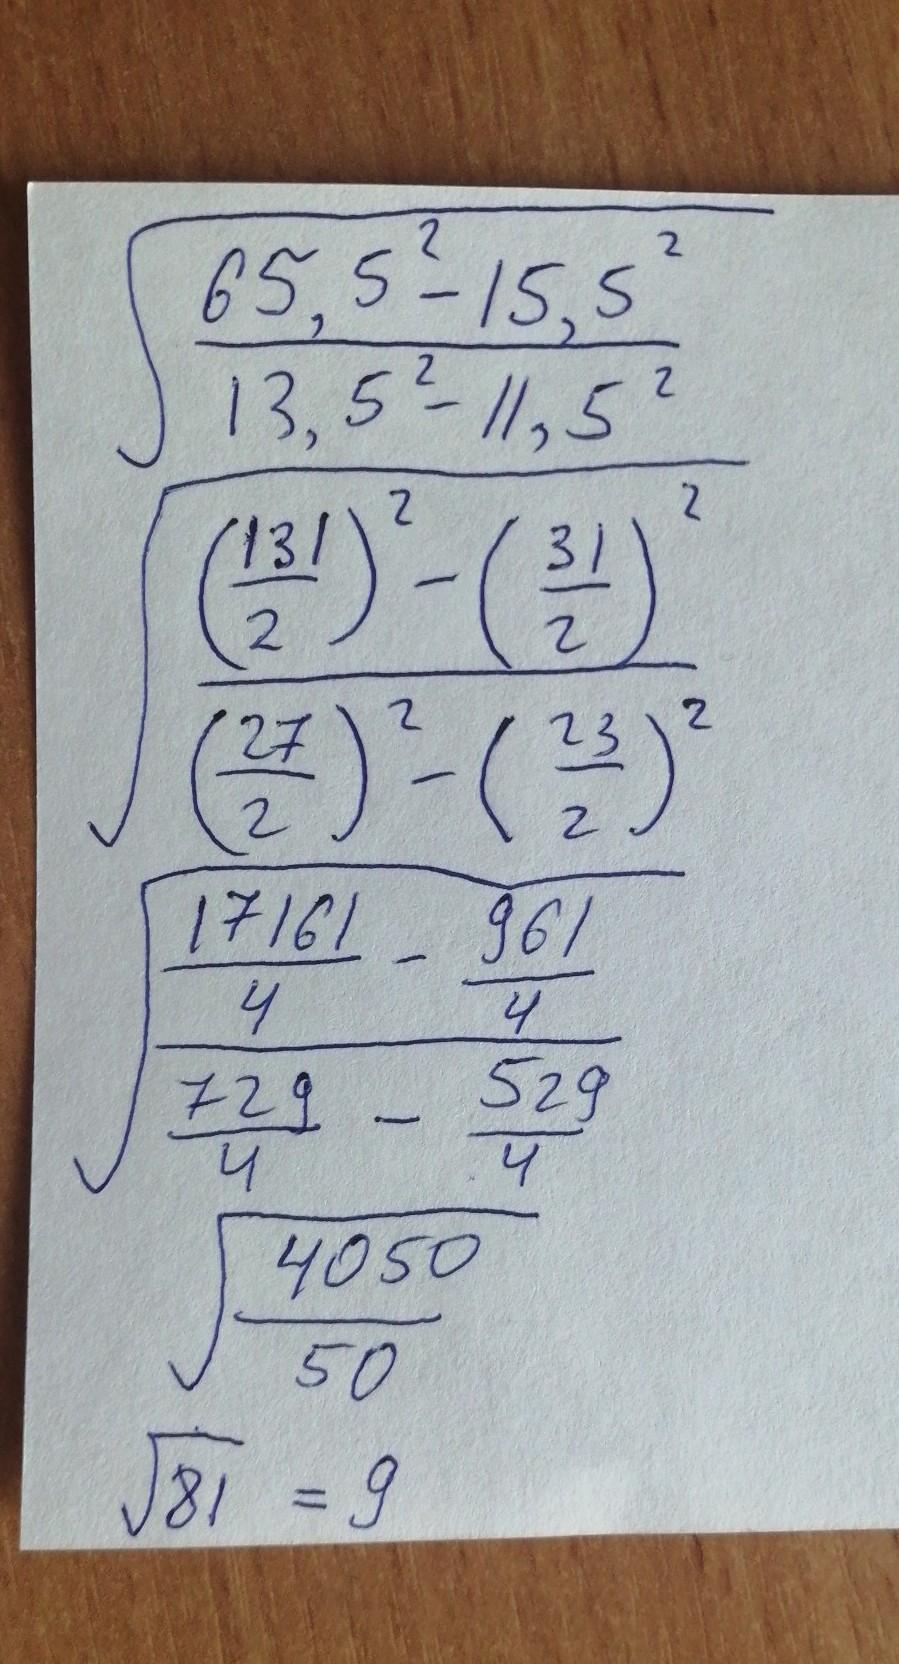 √((65,5² - 15,5²) / (13,5² - 11,5²))
√(((131/2)² - (31/2)²) / ((27/2)² - (23/2)²))
√((17161/4 - 961/4) / (729/4 - 529/4))
√(4050/50)
√81 = 9